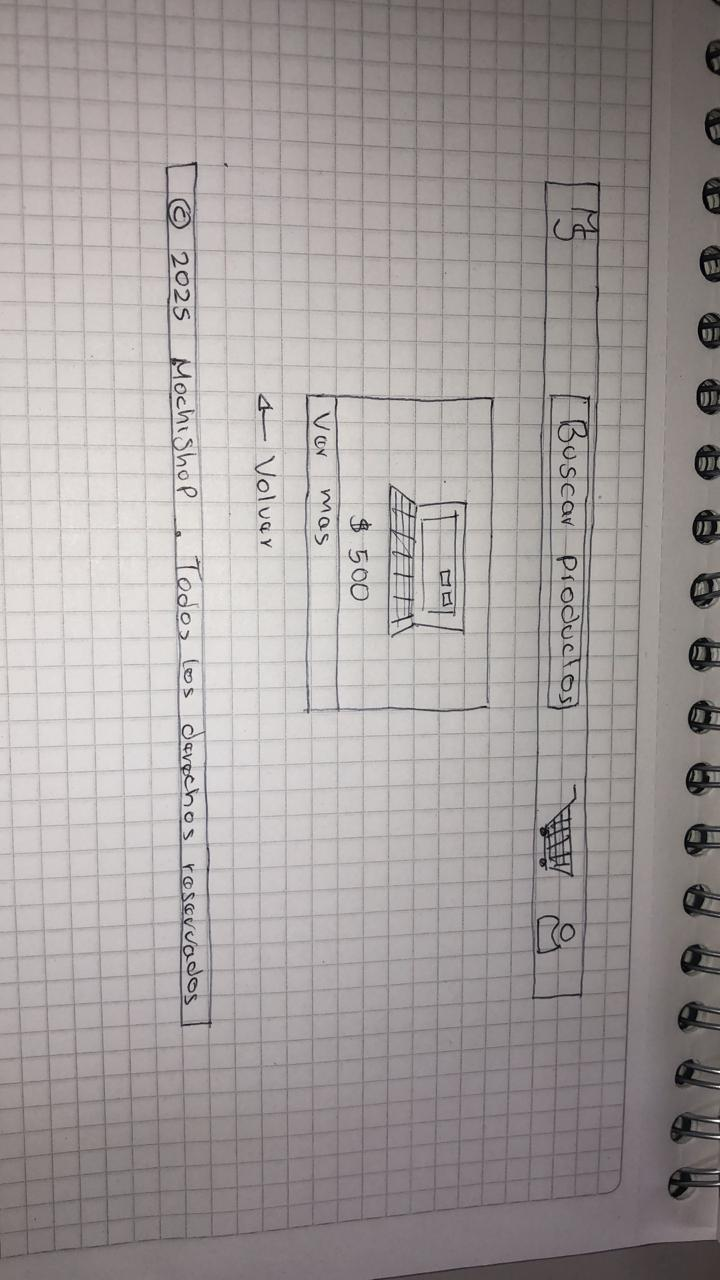 MS
Buscar productos
$ 500
Ver mas
← Volver
© 2025 MochiShop . Todos los derechos reservados